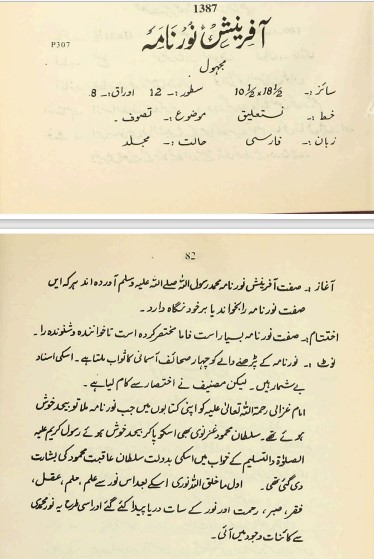 1387
آفرینش نور نامہ
P307
مجہول
سائز:۔ 10½×18½ سطور:۔ 12 اوراق:۔ 8
خط:۔ نستعلیق موضوع:۔ تصوف۔
زبان:۔ فارسی حالت:۔ مجلد
82
آغاز:۔ صفت آفرینش نور نامہ محمد رسول اللہ صلے اللہ علیہ وسلم آوردہ اند ہر کہ ایں
صفت نور نامہ را بخواند یا بر خود نگاہ دارد۔
اختتام:۔ صفت نور نامہ بسیار است فاما مختصر کردہ است تا خوانندہ و شنوندہ را۔
نوٹ:۔ نور نامہ کے پڑھنے والے کو چہار صحائف آسمانی کا ثواب ملتا ہے۔ اسکی اسناد
بے شمار ہیں۔ لیکن مصنیف نے اختصار سے کام لیا ہے۔
امام غزالی رحمۃ اللہ تعالیٰ علیہ کو اپنی کتابوں میں جب نور نامہ ملا تو بیحد خوش
ہوئے تھے۔ سلطان محمود غزنوی بھی اسکو پاکر بیحد خوش ہوئے رسول کریم علیہ
الصلوٰۃ والتسلیم کے خواب میں اسکی بدولت سلطان عاقبت محمود کی بشارت
دی گئی تھی۔ اول ما خلق اللہ نوری اسکے بعد اس نور سے علم، حلم، عقل،
فقر، صبر، رحمت اور نور کے سات دریا پیدا کئے گئے اور اسی طرح یہ نور محمدی
سے کائنات وجود میں آئی۔